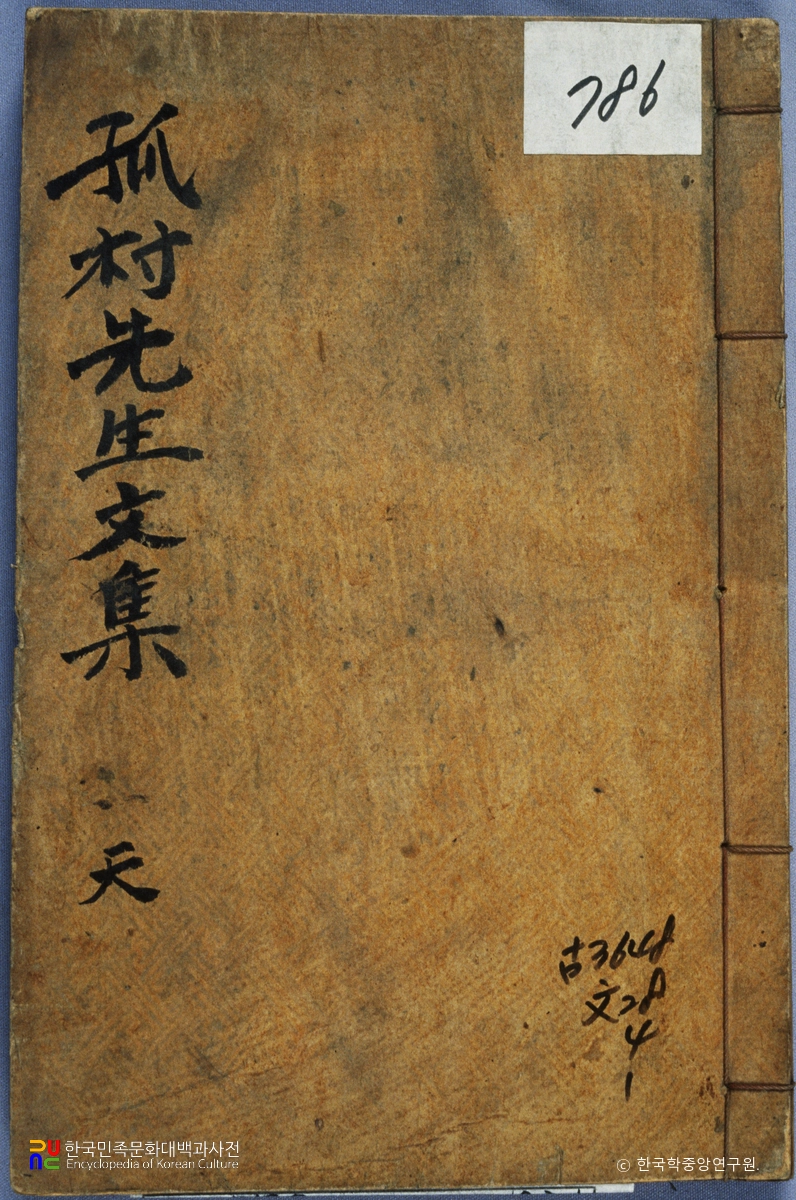 786
孤村先生文集
天
古3648
文28
4
1
한국민족문화대백과사전
Encyclopedia of Korean Culture
© 한국학중앙연구원.